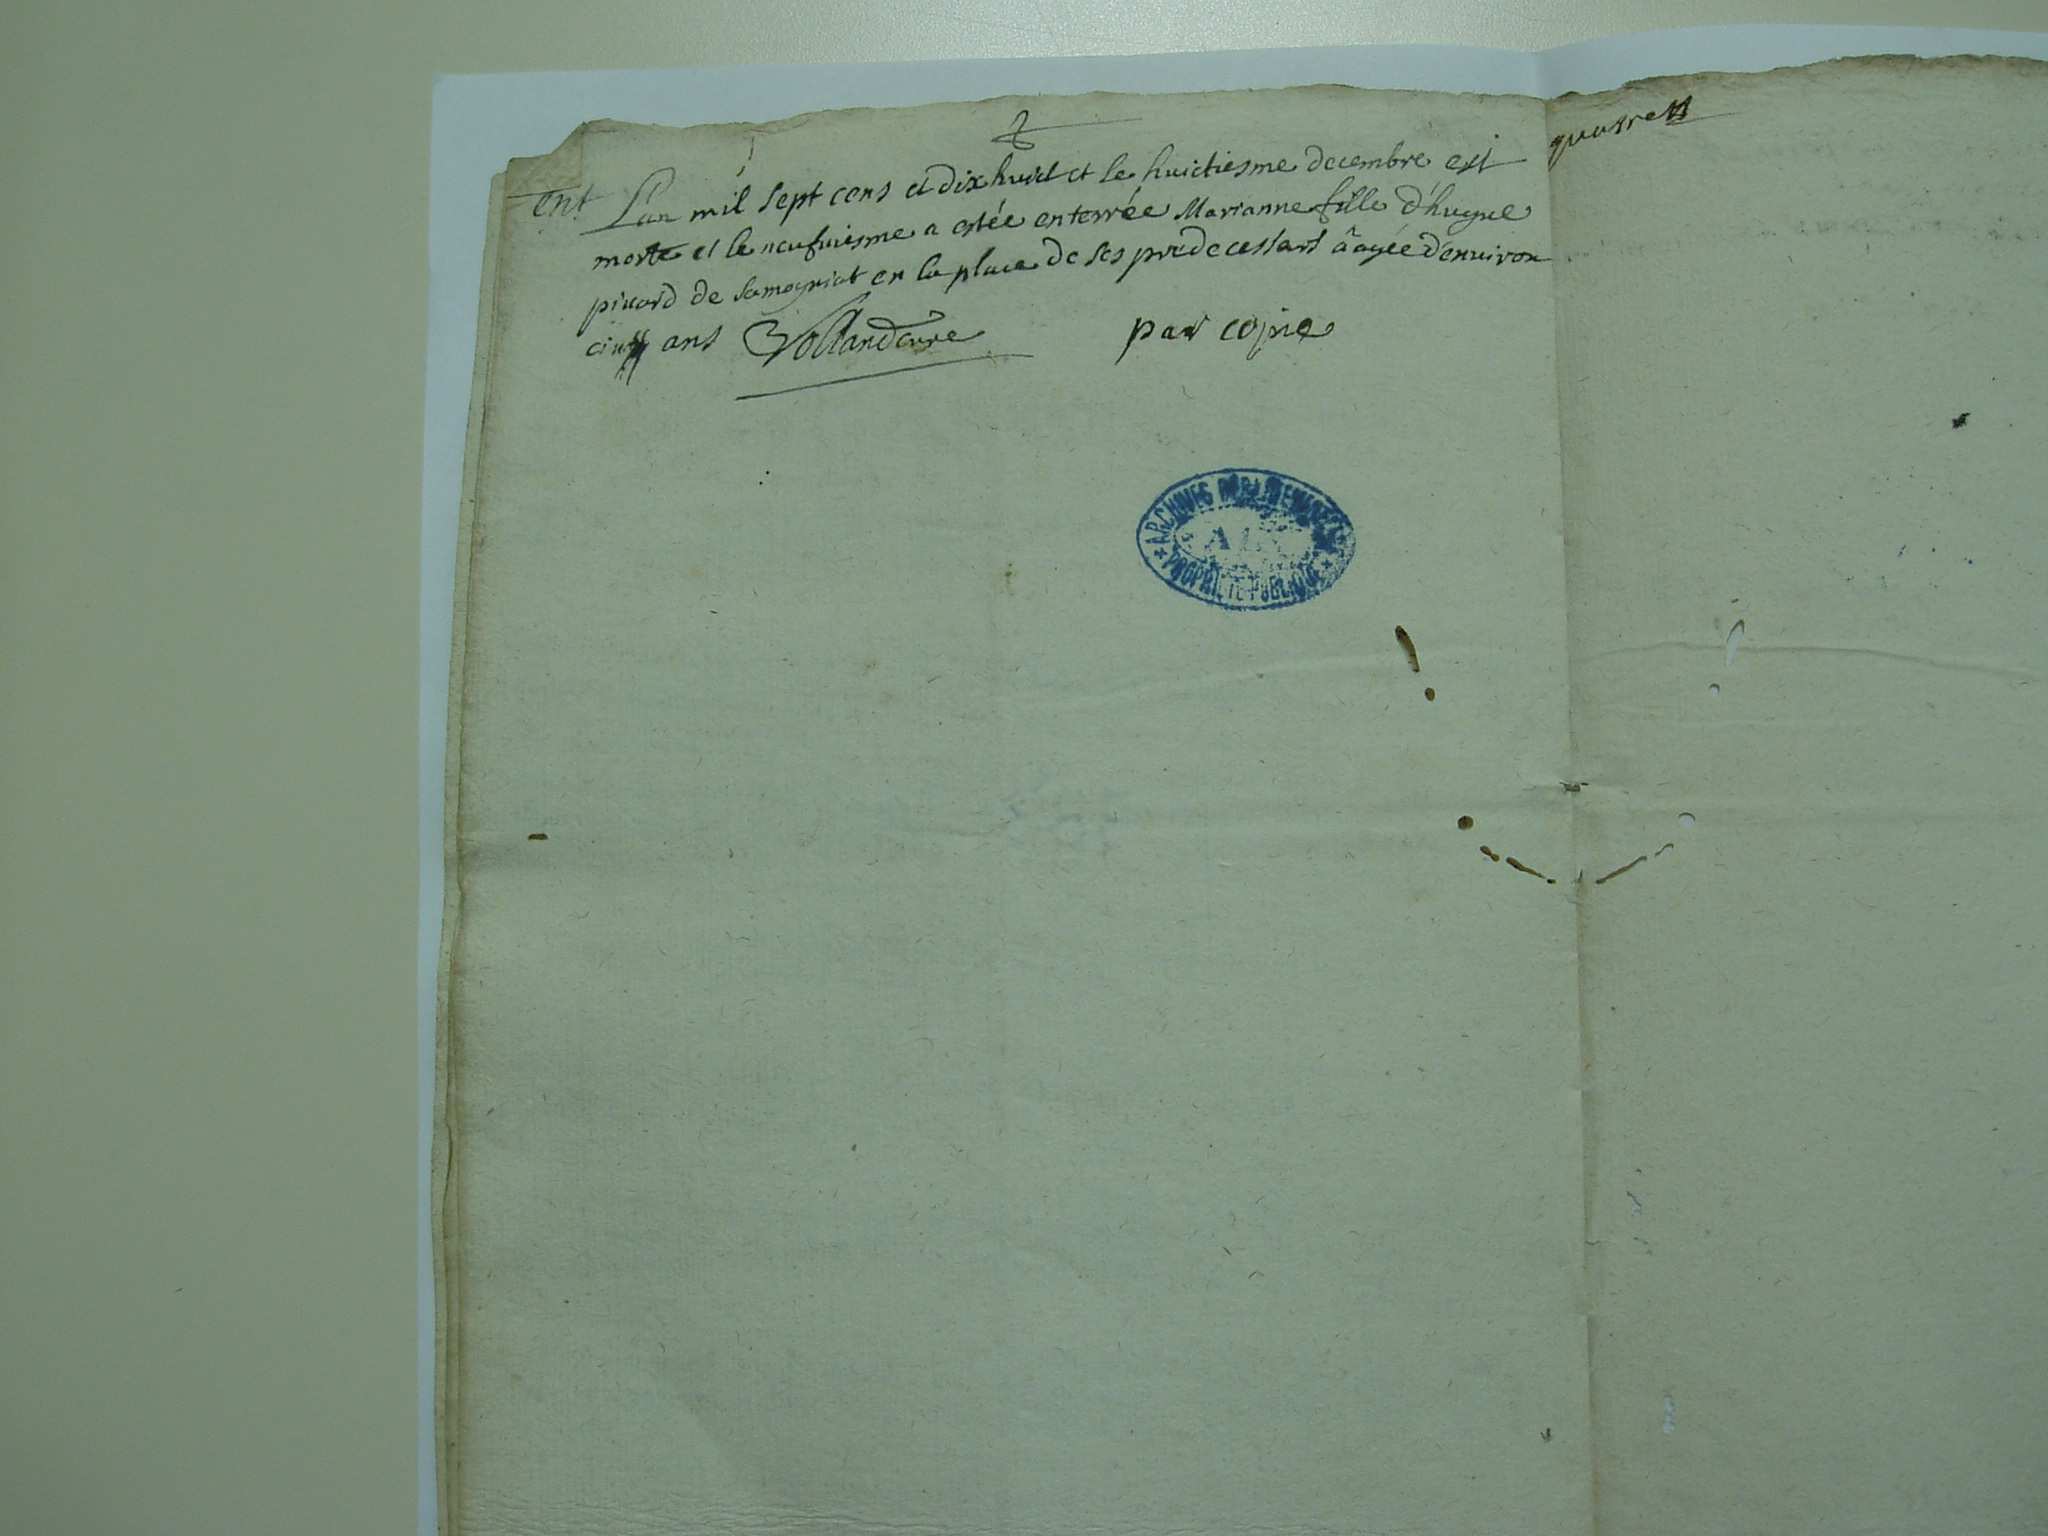 quatre
ent L'an mil sept cens et dix huict et le huictiesme decembre est
morte et le neufuiesme a estée enterrée Marianne fille d'hugue
piuard de samogniat en la place de ses predecessars âagée d'enuiron
cinq ans Volland cure par copie
ARCHIVES DEPARTEMENTALES
AIN
PROPRIETE PUBLIQUE